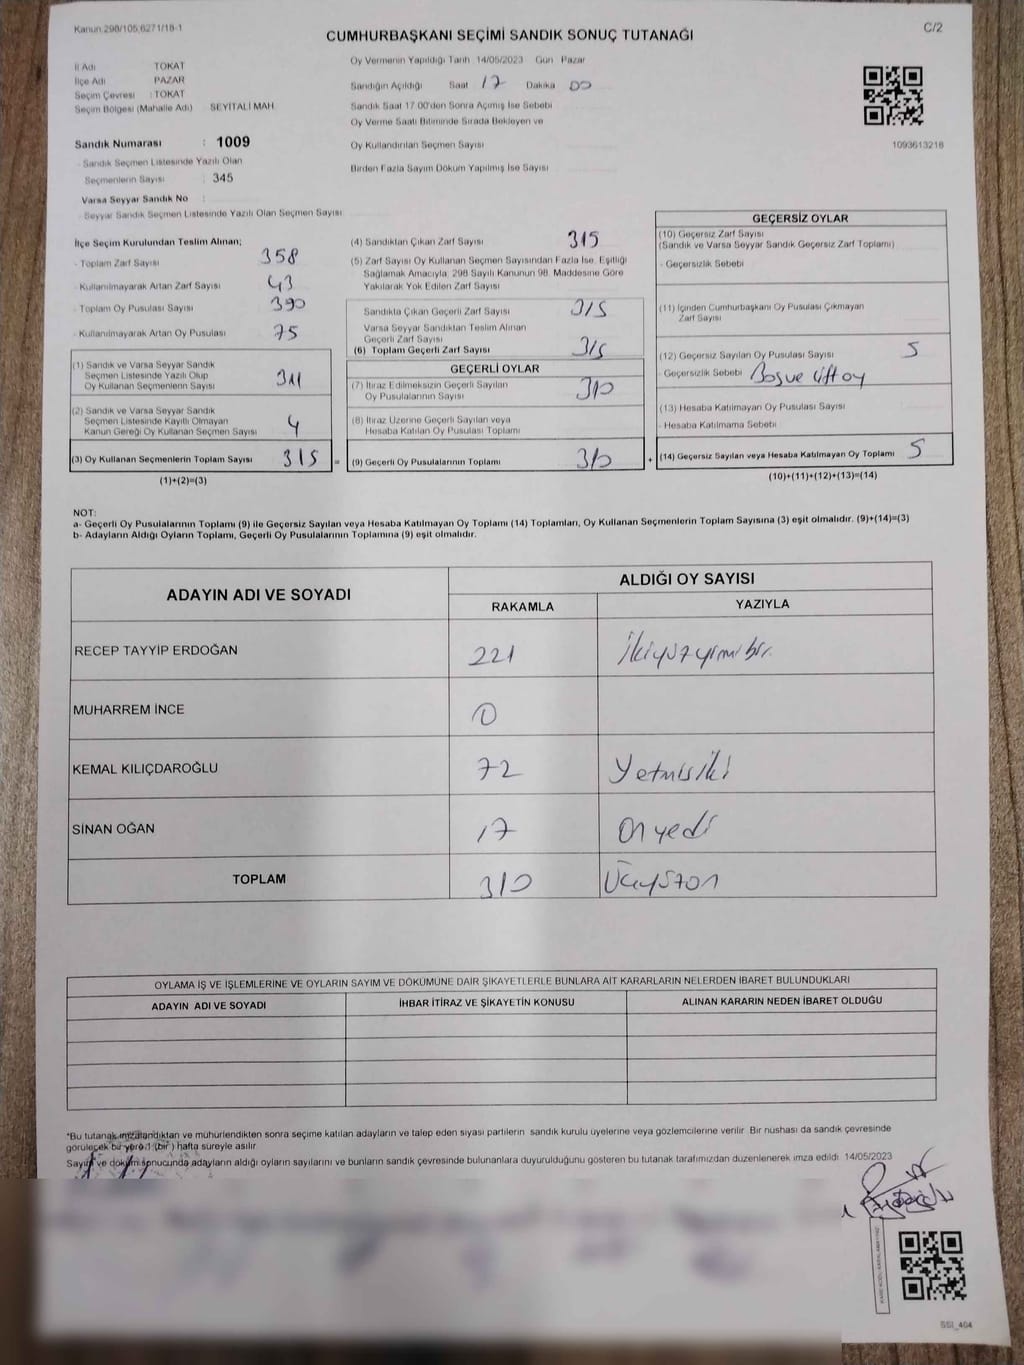 Kanun 298/105,6271/18-1
C/2
CUMHURBAŞKANI SEÇİMİ SANDIK SONUÇ TUTANAĞI
İl Adı TOKAT
İlçe Adı PAZAR
Seçim Çevresi : TOKAT
Seçim Bölgesi (Mahalle Adı) SEYİTALİ MAH.
Sandık Numarası : 1009
- Sandık Seçmen Listesinde Yazılı Olan
Seçmenlerin Sayısı : 345
Varsa Seyyar Sandık No :
- Seyyar Sandık Seçmen Listesinde Yazılı Olan Seçmen Sayısı
Oy Vermenin Yapıldığı Tarih 14/05/2023 Gün Pazar
Sandığın Açıldığı Saat 17 Dakika 00
Sandık Saat 17.00'den Sonra Açılmış İse Sebebi
Oy Verme Saati Bitiminde Sırada Bekleyen ve
Oy Kullandırılan Seçmen Sayısı
Birden Fazla Sayım Döküm Yapılmış İse Sayısı
1093613218
İlçe Seçim Kurulundan Teslim Alınan;
- Toplam Zarf Sayısı 358
- Kullanılmayarak Artan Zarf Sayısı 43
- Toplam Oy Pusulası Sayısı 390
- Kullanılmayarak Artan Oy Pusulası 75
(1) Sandık ve Varsa Seyyar Sandık
Seçmen Listesinde Yazılı Olup
Oy Kullanan Seçmenlerin Sayısı 311
(2) Sandık ve Varsa Seyyar Sandık
Seçmen Listesinde Kayıtlı Olmayan
Kanun Gereği Oy Kullanan Seçmen Sayısı 4
(3) Oy Kullanan Seçmenlerin Toplam Sayısı 315 =
(1)+(2)=(3)
(4) Sandıktan Çıkan Zarf Sayısı 315
(5) Zarf Sayısı Oy Kullanan Seçmen Sayısından Fazla İse, Eşitliği
Sağlamak Amacıyla, 298 Sayılı Kanunun 98. Maddesine Göre
Yakılarak Yok Edilen Zarf Sayısı
Sandıkta Çıkan Geçerli Zarf Sayısı 315
Varsa Seyyar Sandıktan Teslim Alınan
Geçerli Zarf Sayısı
(6) Toplam Geçerli Zarf Sayısı 315
GEÇERLİ OYLAR
(7) İtiraz Edilmeksizin Geçerli Sayılan
Oy Pusulalarının Sayısı 310
(8) İtiraz Üzerine Geçerli Sayılan veya
Hesaba Katılan Oy Pusulası Toplamı
(9) Geçerli Oy Pusulalarının Toplamı 310 +
GEÇERSİZ OYLAR
(10) Geçersiz Zarf Sayısı
(Sandık ve Varsa Seyyar Sandık Geçersiz Zarf Toplamı)
- Geçersizlik Sebebi
(11) İçinden Cumhurbaşkanı Oy Pusulası Çıkmayan
Zarf Sayısı
(12) Geçersiz Sayılan Oy Pusulası Sayısı 5
- Geçersizlik Sebebi Boş ve Çift oy
(13) Hesaba Katılmayan Oy Pusulası Sayısı
- Hesaba Katılmama Sebebi
(14) Geçersiz Sayılan veya Hesaba Katılmayan Oy Toplamı 5
(10)+(11)+(12)+(13)=(14)
NOT:
a- Geçerli Oy Pusulalarının Toplamı (9) ile Geçersiz Sayılan veya Hesaba Katılmayan Oy Toplamı (14) Toplamları, Oy Kullanan Seçmenlerin Toplam Sayısına (3) eşit olmalıdır. (9)+(14)=(3)
b- Adayların Aldığı Oyların Toplamı, Geçerli Oy Pusulalarının Toplamına (9) eşit olmalıdır.
ADAYIN ADI VE SOYADI
ALDIĞI OY SAYISI
RAKAMLA YAZIYLA
RECEP TAYYİP ERDOĞAN 221 İkiyüzyirmibir
MUHARREM İNCE 0
KEMAL KILIÇDAROĞLU 72 Yetmişiki
SİNAN OĞAN 17 Onyedi
TOPLAM 310 Üçyüzon
OYLAMA İŞ VE İŞLEMLERİNE VE OYLARIN SAYIM VE DÖKÜMÜNE DAİR ŞİKAYETLERLE BUNLARA AİT KARARLARIN NELERDEN İBARET BULUNDUKLARI
ADAYIN ADI VE SOYADI İHBAR İTİRAZ VE ŞİKAYETİN KONUSU ALINAN KARARIN NEDEN İBARET OLDUĞU
*Bu tutanak imzalandıktan ve mühürlendikten sonra seçime katılan adayların ve talep eden siyasi partilerin sandık kurulu üyelerine veya gözlemcilerine verilir. Bir nüshası da sandık çevresinde
görülecek bir yere 1 (bir ) hafta süreyle asılır.
Sayım ve döküm sonucunda adayların aldığı oyların sayılarını ve bunların sandık çevresinde bulunanlara duyurulduğunu gösteren bu tutanak tarafımızdan düzenlenerek imza edildi. 14/05/2023
SSI_404